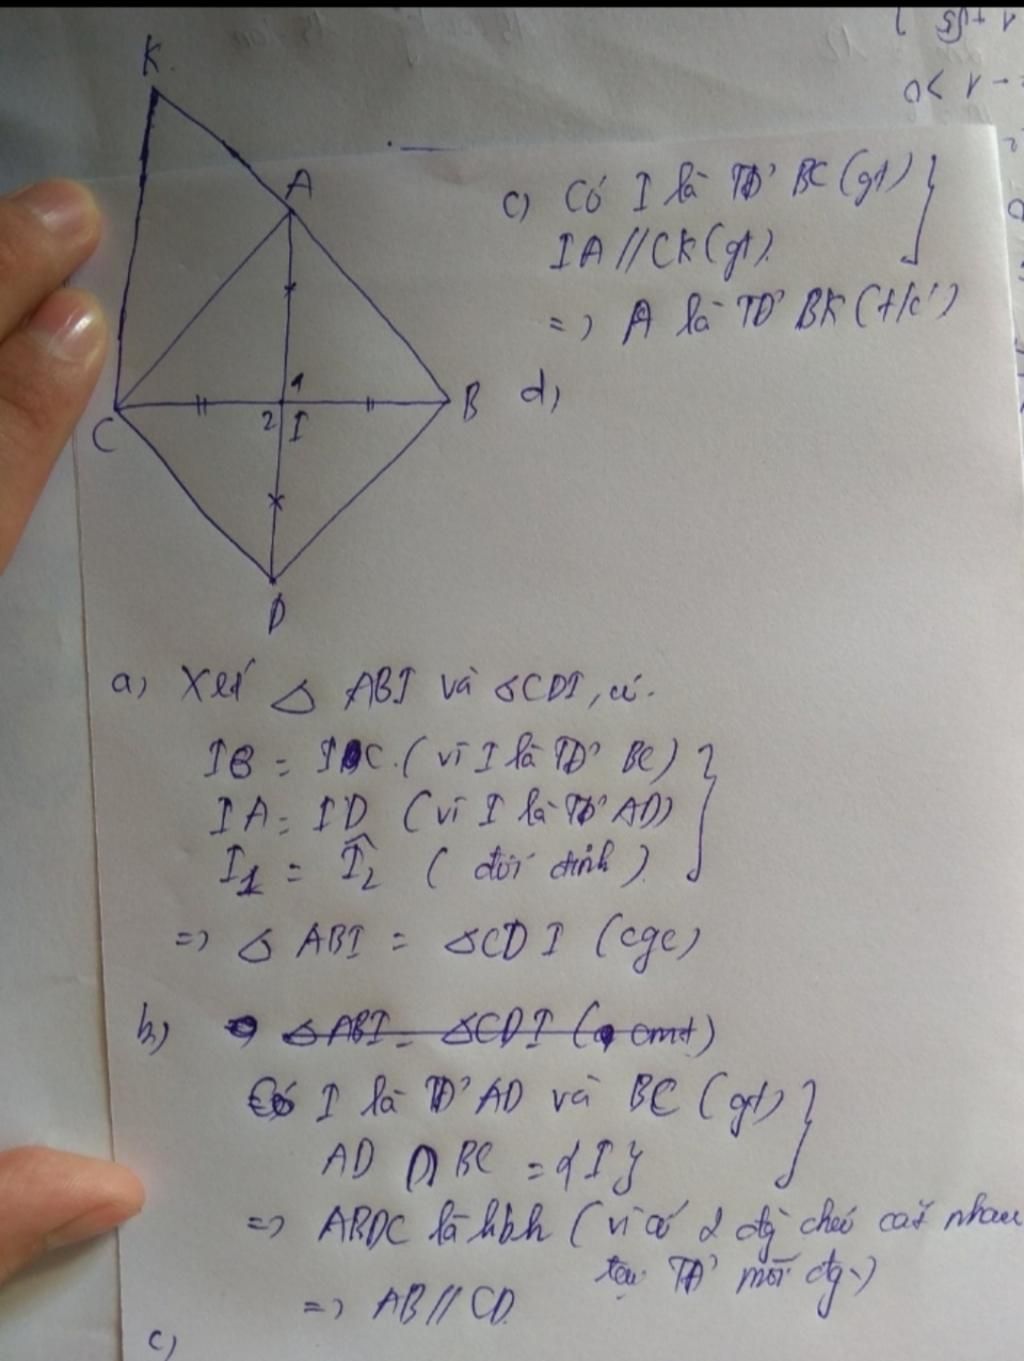 K
A
C
B
1
2
I
D
c) Có I là TĐ' BC (gt)
IA // CK (gt).
=> A là TĐ' BK (t/c')
d)
a) Xét △ ABI và △CDI, có.
IB = IC. (vì I là TĐ' BC)
IA = ID (vì I là TĐ' AD)
I1 = Î2 (đối đỉnh).
=> △ ABI = △CDI (cgc)
b) => △ABI = △CDI (cmt)
Có I là TĐ' AD và BC (gt)
AD ∩ BC = {I}
=> ABDC là hbh (vì có 2 đg chéo cắt nhau
tại TĐ' mỗi đg.)
=> AB // CD.
c)